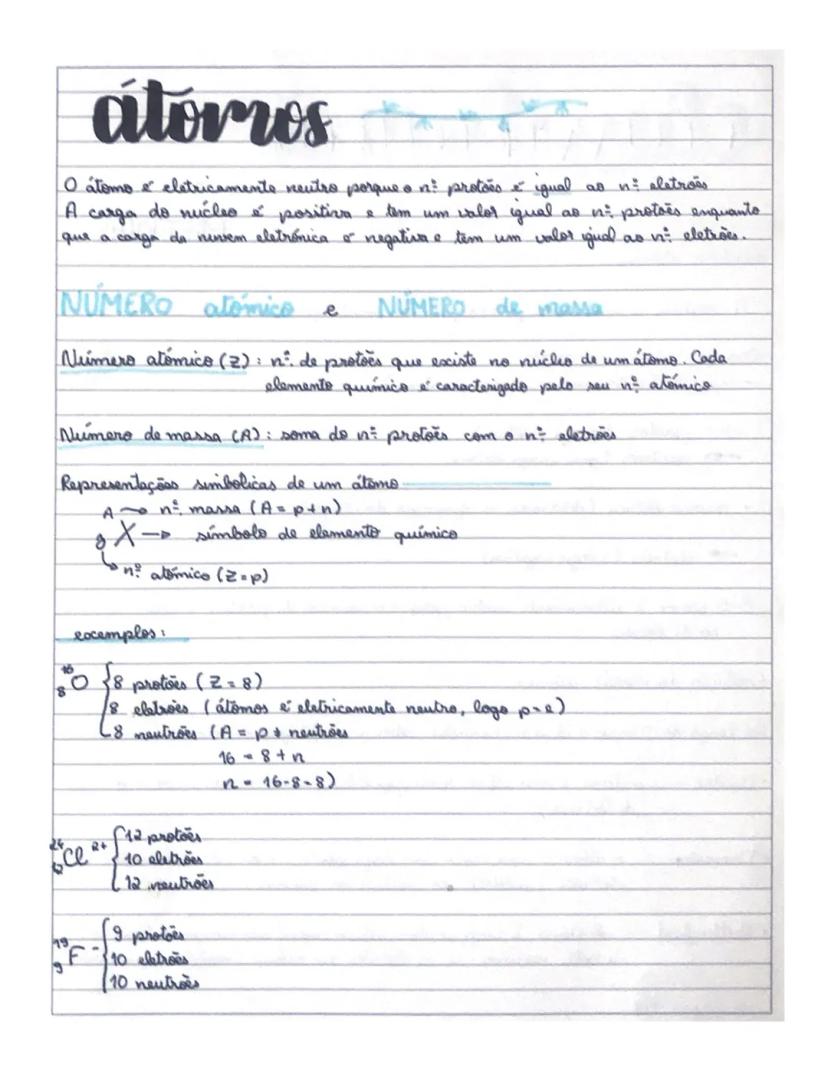 átomos
O átomo é eletricamente neutro porque o nº protões é igual ao nº eletrões
A carga do núcleo é positiva e tem um valor igual ao nº protões enquanto
que a carga da nuvem eletrónica é negativa e tem um valor igual ao nº eletrões.
NÚMERO atómico e NÚMERO de massa
Número atómico (Z): nº. de protões que existe no núcleo de um átomo. Cada
elemento químico é caracterizado pelo seu nº atómico
Número de massa (A): soma do nº protões com o nº eletrões
Representações simbólicas de um átomo
A → nº. massa (A = p + n)
X → símbolo de elemento químico
nº atómico (Z = p)
exemplos:
16
8 O { 8 protões (Z = 8)
8 eletrões (átomos é eletricamente neutro, logo p = e)
8 neutrões (A = p + neutrões
16 = 8 + n
n = 16-8 = 8)
24
12 Cl 2+ { 12 protões
10 eletrões
12 neutrões
19
9 F - { 9 protões
10 eletrões
10 neutrões